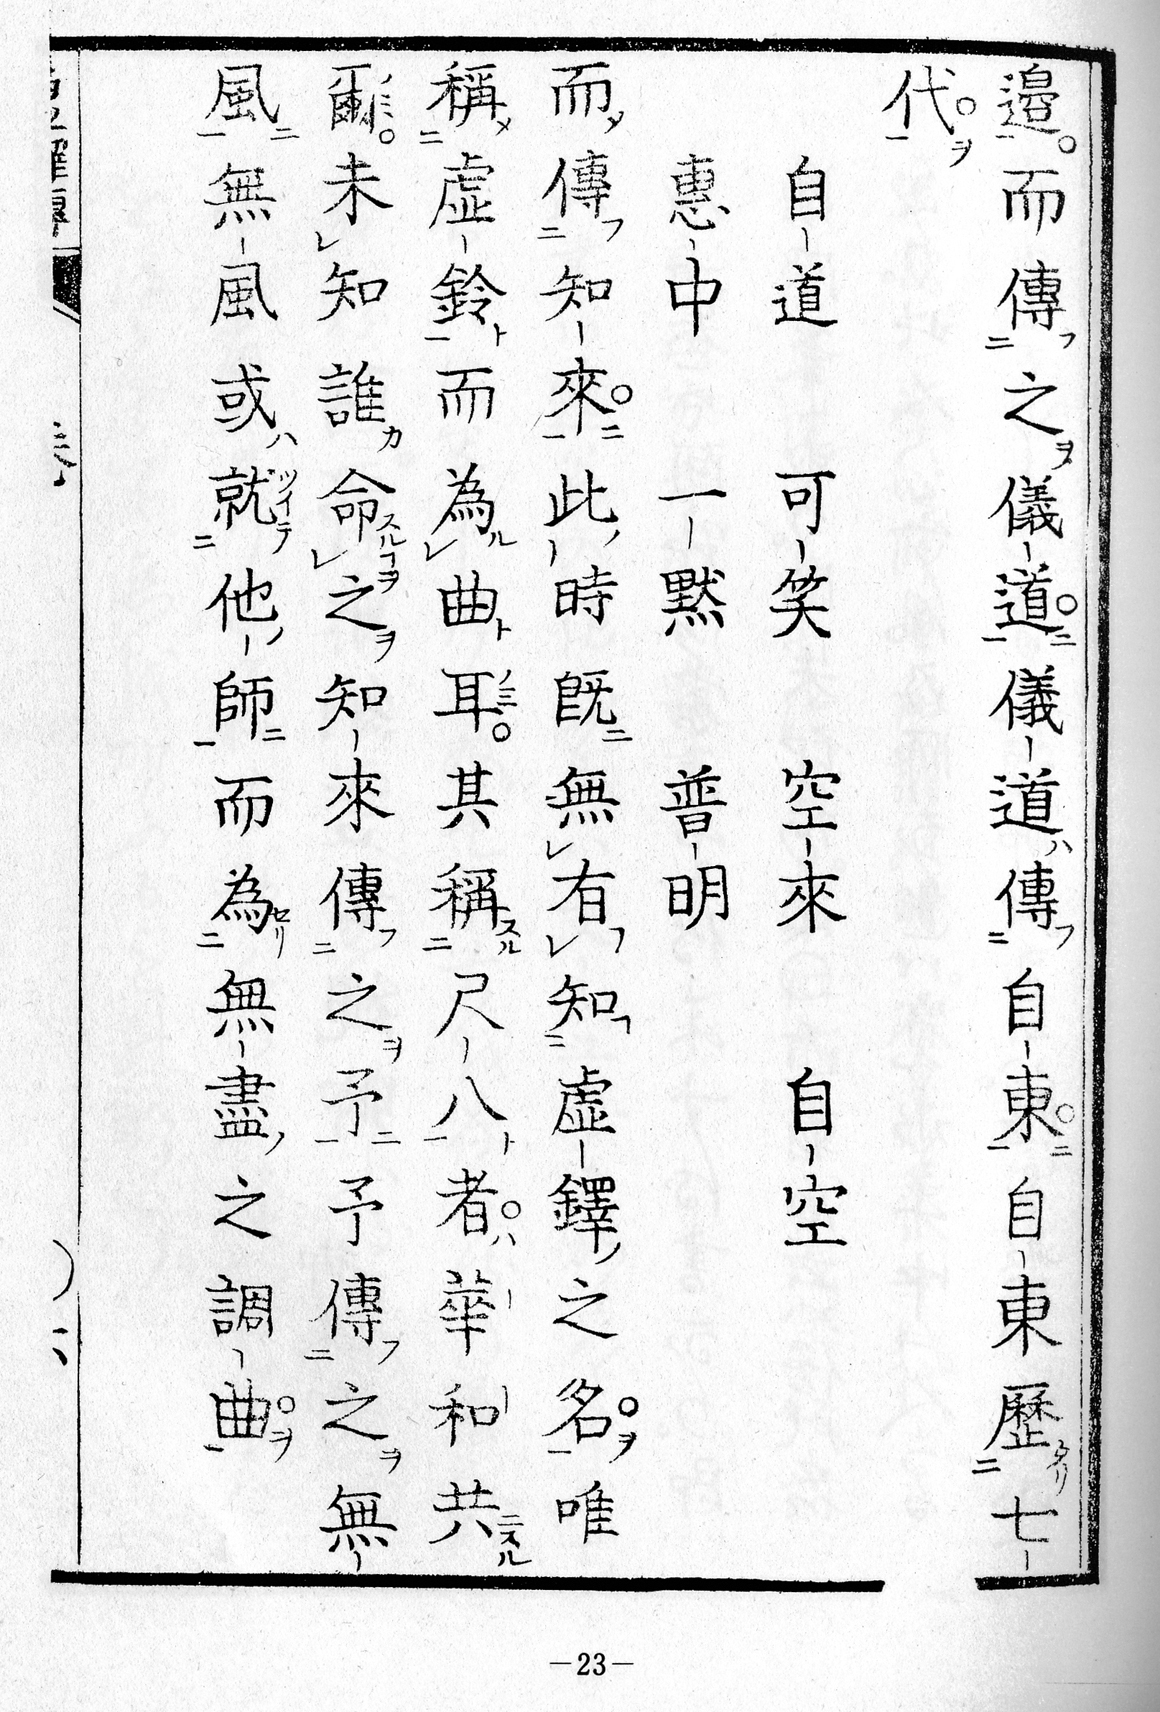 邉而傳之儀道儀道傳自東自東歷七
代
自道　可笑　空來　自空
惠中　一黙　普明
而傳知來此時既無有知虛鐸之名唯
稱虛鈴而為曲耳其稱尺八者華和共
爾未知誰命之知來傳之予予傳之無
風無風或就他師而為無盡之調曲
—23—